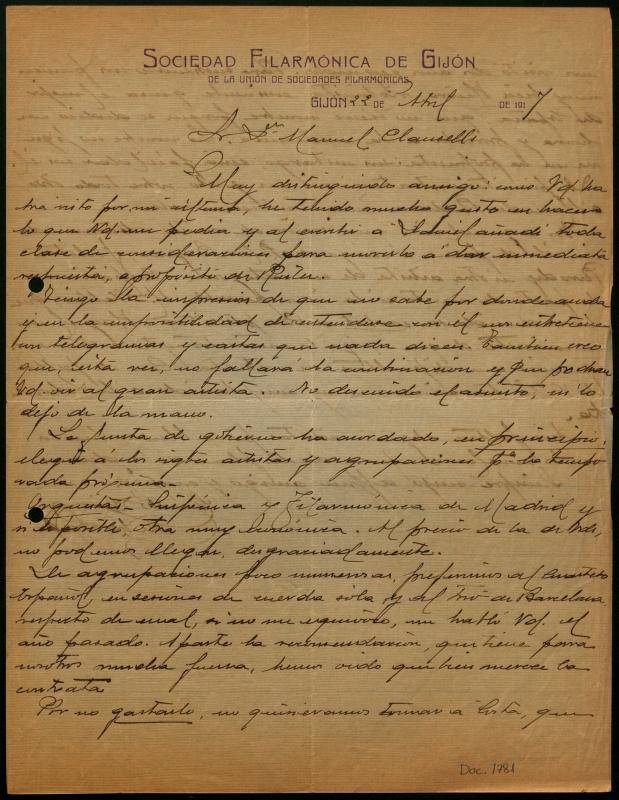 SOCIEDAD FILARMÓNICA DE GIJÓN
DE LA UNIÓN DE SOCIEDADES FILARMÓNICAS
GIJÓN 22 DE Abril DE 1917
Sr. Dn Manuel Clausells
Muy distinguido amigo: como Vd. ha
brá visto por mi última, he tenido mucho gusto en hacer
lo que Vd. me pedía y al escribir a Daniel añadí toda
clase de consideraciones para moverlo á dar inmediata
respuesta, a propósito de
Tengo la impresión de que no sabe por donde anda
y en la imposibilidad de entenderse con él nos entretiene
con telegramas y cartas que nada dicen. También creo
que, esta vez, no fallará la combinación y que podrán
Vd. oir al gran artista. No descuido el asunto, ni lo
dejo de la mano.
La Junta de gobierno ha acordado, en principio,
elegir á los sigtes artistas y agrupaciones pa la tempo
rada próxima.-
Orquestas- Sinfónica y Filarmónica de Madrid y
si es posible otra muy económica. Al precio de la de
no podemos llegar, desgraciadamente.
De agrupaciones poco numerosas, preferimos al Cuarteto
Español, en sesiones de cuerda sola y al Trío de Barcelona
respecto de cual, si no me equivoco, me habló Vd. el
año pasado. Aparte la recomendación, que tiene para
nosotros mucha fuerza, hemos oido que bien merece la
contrata
Por no gastarlo, no quisieramos tomar a Costa, que
Doc. 1781